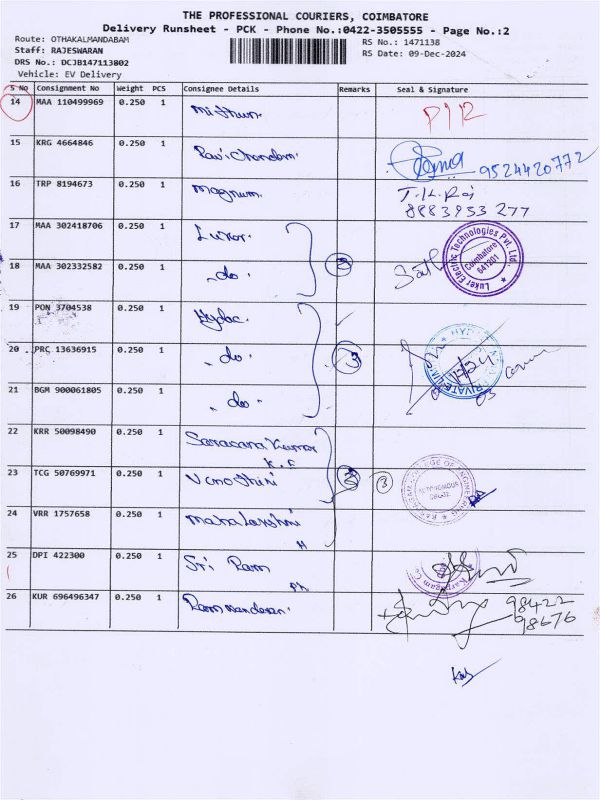 THE PROFESSIONAL COURIERS, COIMBATORE
Delivery Runsheet - PCK - Phone No.:0422-3505555 - Page No.:2
Route: OTHAKALMANDABAM
RS No.: 1471138
Staff: RAJESWARAN
RS Date: 09-Dec-2024
DRS No.: DCJB147113802
Vehicle: EV Delivery
S No Consignment No Weight PCS Consignee Details Remarks Seal & Signature
14 MAA 110499969 0.250 1 Mithun.
15 KRG 4664846 0.250 1 9524420772
16 TRP 8194673 0.250 1 Magnum. T.K. Raj
8883953 277
17 MAA 302418706 0.250 1 Luker Electric Technologies Pvt. Ltd.
Coimbatore
641201
18 MAA 302332582 0.250 1 - do -
19 PON 3704538 0.250 1 Hydac.
20 PRC 13636915 0.250 1 - do - 3
21 BGM 900061805 0.250 1 - do -
22 KRR 50098490 0.250 1 Saravana Kumar
K.E
23 TCG 50769971 0.250 1 3 COLLEGE OF ENGINEERING
AUTONOMOUS
24 VRR 1757658 0.250 1 Maha Lakshmi
H
25 DPI 422300 0.250 1 Sri Ram
26 KUR 696496347 0.250 1 98422
98676